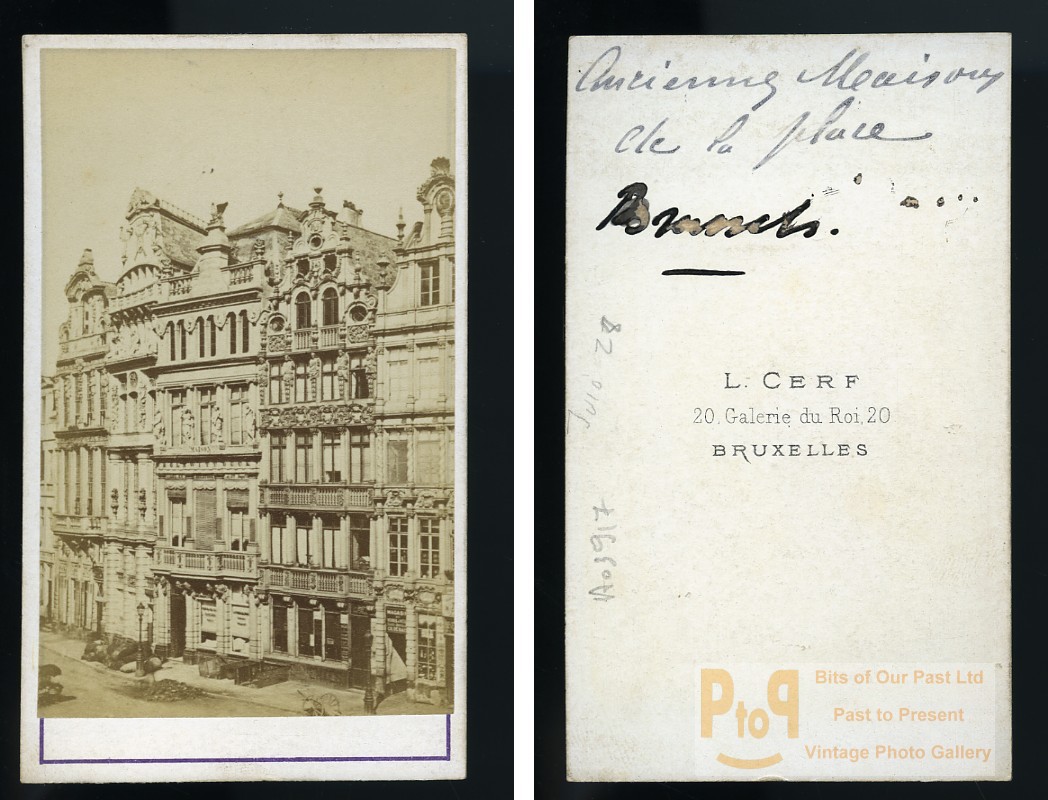 Ancienne Maisons
de la place
Bruxels.
L. CERF
20, Galerie du Roi, 20
BRUXELLES
IA03917
PtoP
Bits of Our Past Ltd
Past to Present
Vintage Photo Gallery